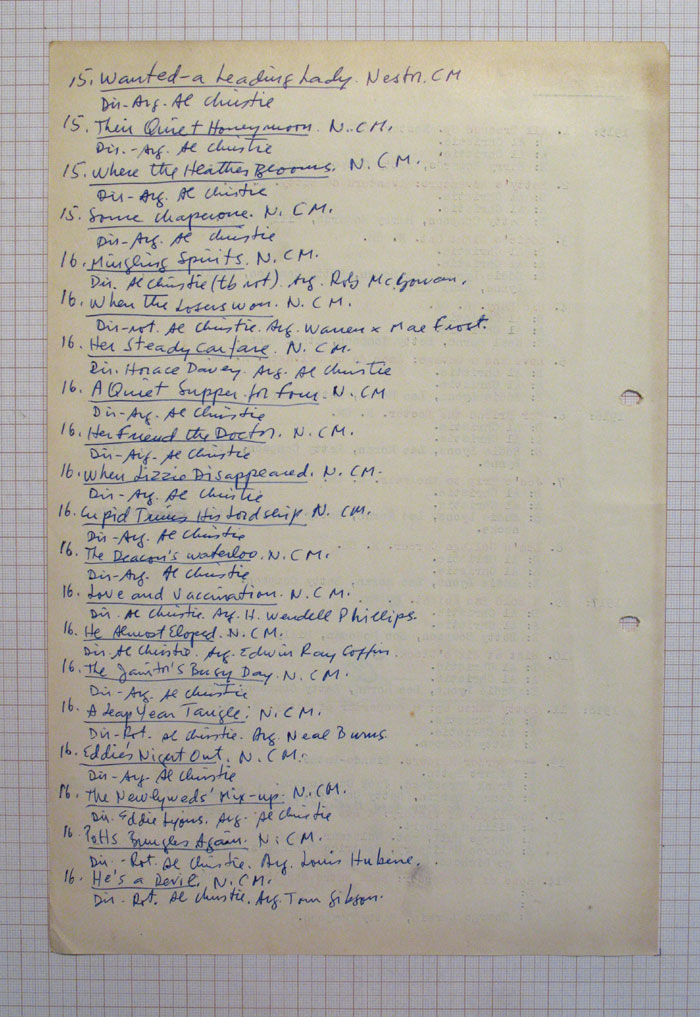 15. Wanted-a Leading Lady. Nestor. CM
Dir-Arg. Al Christie
15. Their Quiet Honeymoon. N. CM.
Dir.-Arg. Al Christie
15. Where the Heather Blooms. N. CM.
Dir-Arg. Al Christie
15. Some chaperone. N. CM.
Dir-Arg. Al Christie
16. Mingling Spirits. N. CM.
Dir. Al Christie (tb rot). Arg. Rob McGowan.
16. When the Losers won. N. CM.
Dir-rot. Al Christie. Arg. Warren x Mae Frost.
16. Her Steady Carfare. N. CM.
Dir. Horace Davey. Arg. Al Christie
16. A Quiet Supper for Four. N. CM
Dir-Arg. Al Christie
16. Her Friend the Doctor. N. CM.
Dir-Arg. Al Christie
16. When Lizzie Disappeared. N. CM.
Dir-Arg. Al Christie
16. Cupid Trims His Lordship. N. CM.
Dir-Arg. Al Christie
16. The Deacon's Waterloo. N. CM.
Dir-Arg. Al Christie
16. Love and Vaccination. N. CM.
Dir. Al Christie. Arg. H. Wendell Phillips.
16. He Almost Eloped. N. CM.
Dir. Al Christie. Arg. Edwin Ray Coffin
16. The Janitor's Busy Day. N. CM.
Dir-Arg. Al Christie
16. A Leap Year Tangle. N. CM.
Dir-Rot. Al Christie. Arg. Neal Burns
16. Eddie's Night Out. N. CM.
Dir-Arg. Al Christie
16. The Newlyweds' Mix-up. N. CM.
Dir. Eddie Lyons. Arg. Al Christie
16. Potts Bungles Again. N. CM.
Dir.-Rot. Al Christie. Arg. Louis Hubine.
16. He's a Devil. N. CM.
Dir. Rot. Al Christie. Arg. Tom Gibson.